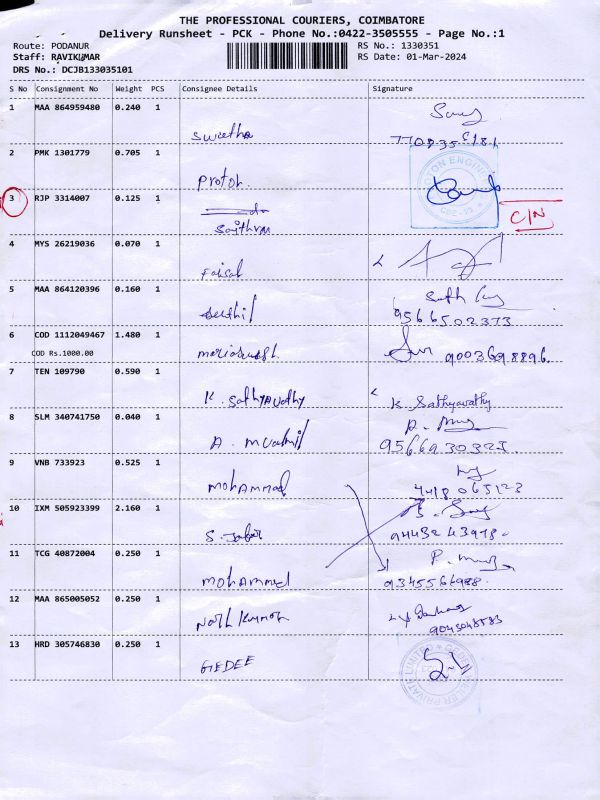 THE PROFESSIONAL COURIERS, COIMBATORE
Delivery Runsheet - PCK - Phone No.:0422-3505555 - Page No.:1
Route: PODANUR
RS No.: 1330351
Staff: RAVIKUMAR
RS Date: 01-Mar-2024
DRS No.: DCJB133035101
S No Consignment No Weight PCS Consignee Details Signature
1 MAA 864959480 0.240 1
Swetha
2 PMK 1301779 0.705 1
Proton
3 RJP 3314007 0.125 1
C/N
Saithram
4 MYS 26219036 0.070 1
Faisal
5 MAA 864120396 0.160 1
Senthil
9566502373
6 COD 1112049467 1.480 1
COD Rs.1000.00
9003698896
7 TEN 109790 0.590 1
K. Sathyavathy K Sathyavathy
8 SLM 340741750 0.040 1
9566930325
9 VNB 733923 0.525 1
Mohammed
10 IXM 505923399 2.160 1
S. Jafar 9443243978
11 TCG 40872004 0.250 1
Mohammed 9345566988
12 MAA 865005052 0.250 1
9043048583
13 HRD 305746830 0.250 1
GEDEE